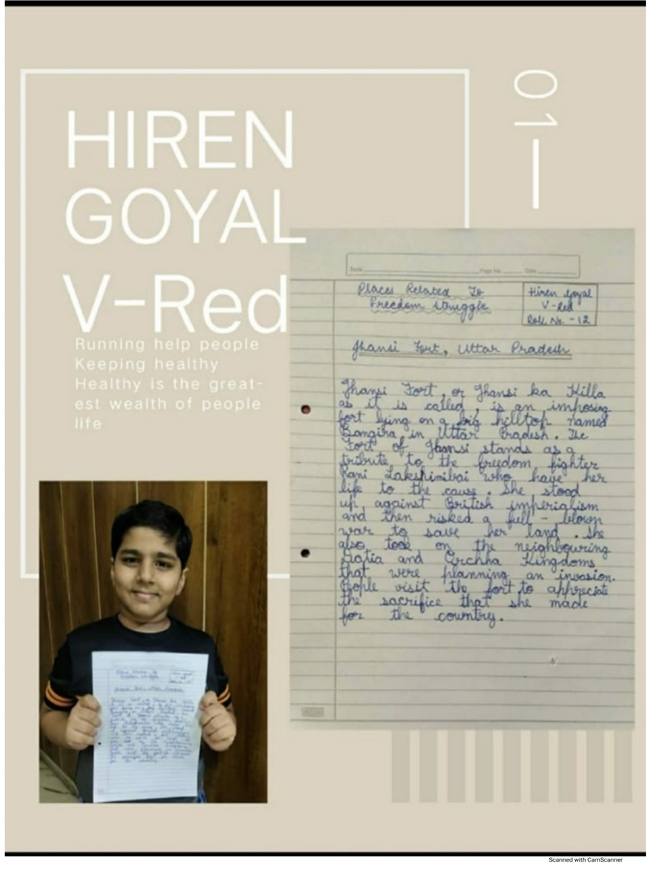 01
HIREN
GOYAL
V-Red
Running help people
Keeping healthy
Healthy is the great-
est wealth of people
life
Page No. Date
Places Related To
Freedom Struggle
Hiren Goyal
V-Red
Roll No. - 12
Jhansi Fort, Uttar Pradesh
Jhansi Fort or Jhansi ka Killa
as it is called, is an imposing
fort lying on a big hilltop named
Bangira in Uttar Pradesh. The
Fort of Jhansi stands as a
tribute to the freedom fighter
Rani Lakshmibai who have her
life to the cause. She stood
up against British imperialism
and then risked a full-blown
war to save her land. She
also took on the neighbouring
Datia and Orchha Kingdoms
that were planning an invasion.
People visit the fort to appreciate
the sacrifice that she made
for the country.
Scanned with CamScanner